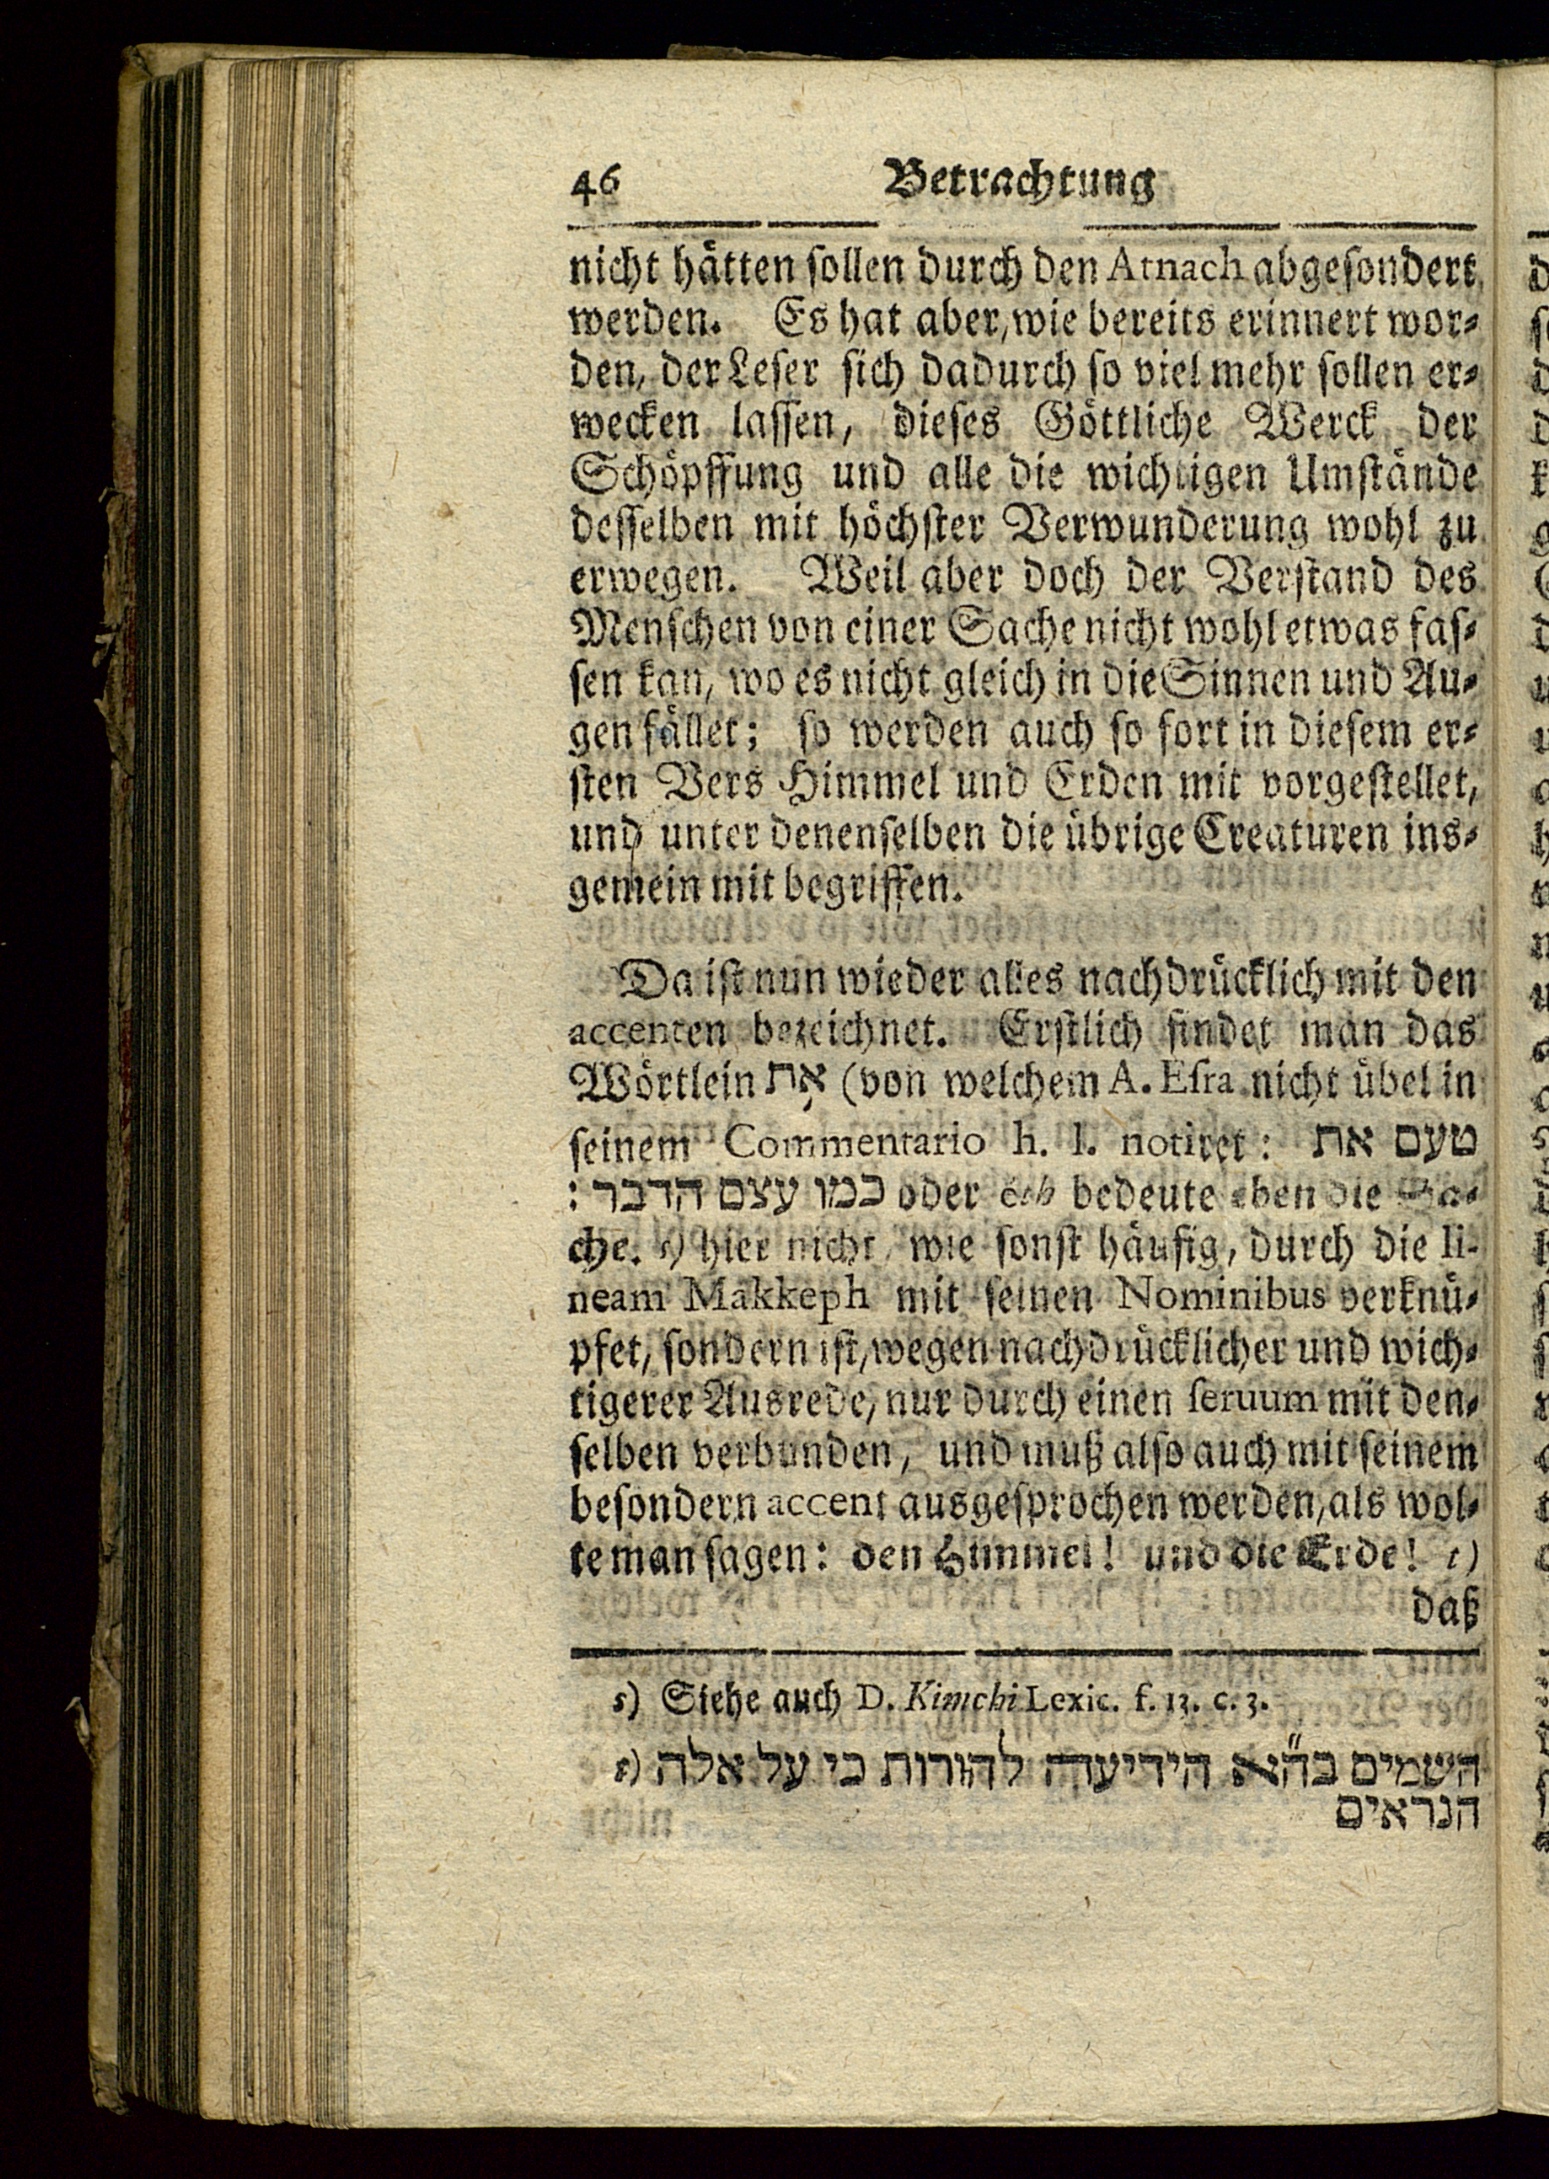 46 Betrachtung
nicht hätten sollen durch den Atnach abgesondert
werden. Es hat aber, wie bereits erinnert wor-
den, der Leser sich dadurch so viel mehr sollen er-
wecken lassen, dieses Göttliche Werck der
Schöpffung und alle die wichtigen Umstände
desselben mit höchster Verwunderung wohl zu
erwegen. Weil aber doch der Verstand des
Menschen von einer Sache nicht wohl etwas fas-
sen kan, wo es nicht gleich in die Sinnen und Au-
gen fället; so werden auch so fort in diesem er-
sten Vers Himmel und Erden mit vorgestellet,
und unter denenselben die übrige Creaturen ins-
gemein mit begriffen.
Da ist nun wieder alles nachdrücklich mit den
accenten bezeichnet. Erstlich findet man das
Wörtlein אֵת (von welchem A. Esra nicht übel in
seinem Commentario h. l. notiret: טעם את
כמו עצם הדבר: oder éth bedeute eben die Sa-
che. s) hier nicht wie sonst häufig, durch die li-
neam Makkeph mit seinen Nominibus verknü-
pfet, sondern ist, wegen nachdrücklicher und wich-
tigerer Ausrede, nur durch einen seruum mit den-
selben verbunden, und muß also auch mit seinem
besondern accent ausgesprochen werden, als wol-
te man sagen: den Himmel! und die Erde! t)
daß
s) Siehe auch D. Kimchi Lexic. f. 13. c. 3.
t) השמים בה״א הידיעה להורות כי על אלה
הנראים